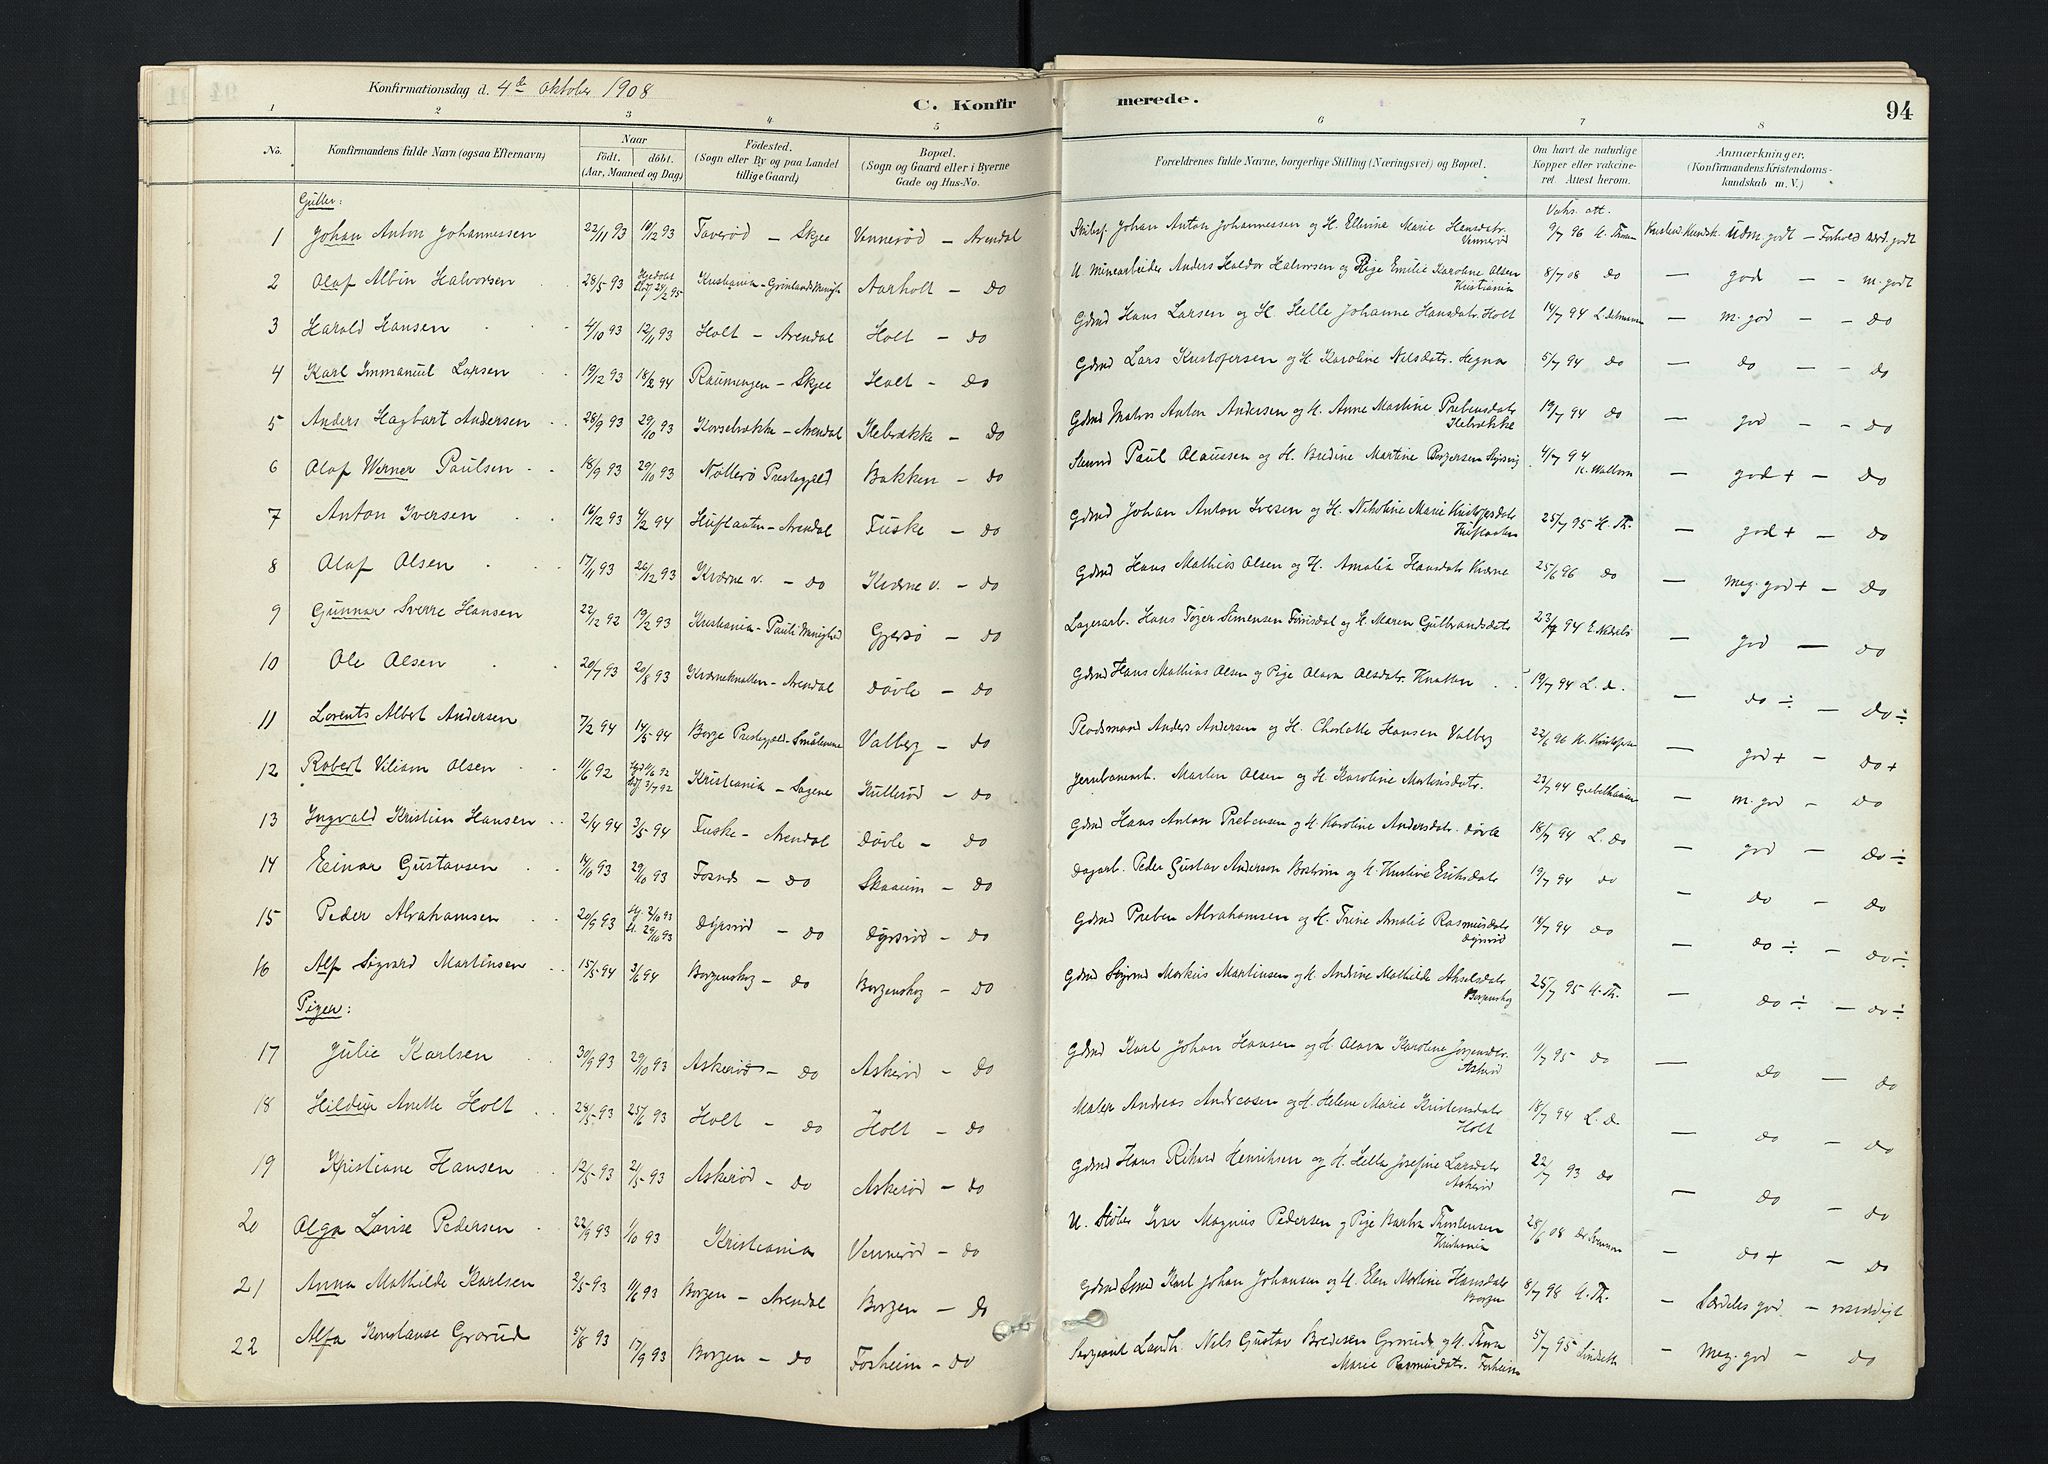 Konfirmationsdag d. 4de Oktober 1908
C. Konfir merede. 94
1 2 3 4 5 6 7 8
No. Konfirmandens fulde Navn (ogsaa Efternavn) Naar födt. döbt. (Aar, Maaned og Dag) Födested. (Sogn eller By og paa Landet tillige Gaard) Bopæl. (Sogn og Gaard eller i Byerne Gade og Hus-No. Forældrenes fulde Navne, borgerlige Stilling (Næringsvei) og Bopæl. Om havt de naturlige Kopper eller vakcineret. Attest herom. Anmærkninger. (Konfirmandens Kristendomskundskab m. V.)
Gutter: Vaks. att.
1 Johan Anton Johannessen 22/11 93 10/12 93 Taverød — Skjee Vennerød — Arendal Johan Anton Johannessen og H. Elline Marie Hansdatr. Vennerød 9/7 96 Kristend. Kundsk. Udm. godt — Forhold
2 Olaf Albin Halvorsen 28/5 93 Kristiania - Grønlands Menigh. Aarholt — Do U. Minearbeider Anders Haldor Halvorsen og Pige Emilie Karoline Olsen Kristiania 8/7 08 do — god — — m. godt
3 Harald Hansen 4/10 93 12/11 93 Holt — Arendal Holt — Do Gdmd Hans Larsen og H. Helle Johanne Hansdatr. Holt 14/7 94 — m. god — — Do
4 Karl Immanuel Larsen 19/12 93 18/2 94 Raumyngen — Skjee Holt — Do Gdmd Lars Kristofersen og H. Karoline Nilsdatr. Hegna 5/7 94 do — do — — do
5 Anders Hagbart Andersen 28/9 93 29/10 93 Korsebrække — Arendal Ilebrække — Do Gdmd Matros Anton Andersen og H. Anne Martine Prebensdatr. Ilebrække 19/7 94 do — god — — Do
6 Olaf Werner Paulsen 18/9 93 29/10 93 Nøtterø Prestegjeld Bakken — Do Paul Olaussen og H. Bredine Martine Borgersen 4/7 94 — god + — Do
7 Anton Iversen 16/12 93 4/2 94 Huflaaten — Arendal Fuske — Do Gdmd Johan Anton Iversen og H. Nikoline Marie Kristofsdatr. 25/7 95 H. Th. — god + — Do
8 Olaf Olsen 17/11 93 26/12 93 Kverne v. — do Kverne v. — Do Gdmd Hans Mathias Olsen og H. Amalia Hansdatr. Kverne 25/6 96 do — Meg. god + — Do
9 Gunnar Sverre Hansen 22/12 92 19/2 93 Kristiania - Pauls Menighed Gjersø — Do Lagerarb. Hans Tøger Simensen og H. Maren Gulbrandsdatr. 23/7 94 — god — do
10 Ole Olsen 20/7 93 20/8 93 Kverneknatten — Arendal Døvle — Do Gdmd Hans Mathias Olsen og Pige Olava Olsdatr. Knatten 19/7 94 L. d. — do ÷ — do ÷
11 Lorents Albert Andersen 7/2 94 14/5 94 Borge Prestegjeld - Smålenene Valberg — Do Anders Andersen og H. Charlotte Hansen Valberg 22/6 96 — god + — Do +
12 Robert Viliam Olsen 11/6 92 Kristiania — Sagene Kullerød — Do Jernbanearb. Martin Olsen og H. Karoline Martinsdatr. 23/7 94 — m. god — Do
13 Ingvald Kristian Hansen 2/4 94 3/5 94 Fuske — Arendal Døvle — Do Gdmd Hans Anton Prebensen og H. Karoline Andersdatr. Døvle 18/7 94 L. do — god — Do ÷
14 Einar Gustavsen 14/10 93 29/10 93 Fosnes — Do Skaaum — Do Dagarb. Peder Gustav Anderson Boström og H. Kristine Eriksdatr. 19/7 94 do — do — do
15 Peder Abrahamsen 20/9 93 Dyrsrød — Do Dyrsrød — Do Gdmd Preben Abrahamsen og H. Trine Amalie Rasmusdatr. Dyrsrød 18/7 94 do — do ÷ — do ÷
16 Alf Sigvard Martinsen 15/5 94 3/6 94 Borgenskog — Do Borgenskog — Do Gdmd Markus Martinsen og H. Andine Mathilde Akselsdatr. Borgenskog 25/7 95 H. Th. — do ÷ — do ÷
Piger:
17 Julie Karlsen 30/9 93 29/10 93 Askerød — Do Askerød — Do Gdmd Karl Johan Hansen og H. Olava Karoline Jørgensdtr. Askerød 11/7 95 do — do — do
18 Hildur Anette Holt 28/5 93 25/6 93 Holt — do Holt — do Maler Andreas Andreasen og H. Helene Marie Kristensdatr. Holt 18/7 94 L. d. — do — do
19 Kristiane Hansen 12/5 93 21/5 93 Askerød — do Askerød — do Gdmd Hans Rikard Henriksen og H. Hella Josefine Larsdatr. Askerød 22/7 93 do — do — do
20 Olga Lovise Pedersen 22/9 93 1/10 93 Kristiania Vennerød — do U. Støber Ivar Magnus Pedersen og Pige Barbra Thorstensen Kristiania 28/6 08 — do + — do
21 Anna Mathilde Karlsen 2/5 93 11/6 93 Borgen — Arendal Borgen — Do Gdmd Smed Karl Johan Johansen og H. Elen Martine Hansdatr. Borgen 8/7 98 H. Th. — Særdeles god —
22 Alfa Konstanse Grorud 5/8 93 17/9 93 Borgen — do Fosheim — do Sergeant Landh. Nils Gustav Bredesen Grorud og H. Thea Marie Rasmusdatr. Fosheim 5/7 95 Lindseth — Meg. god — do